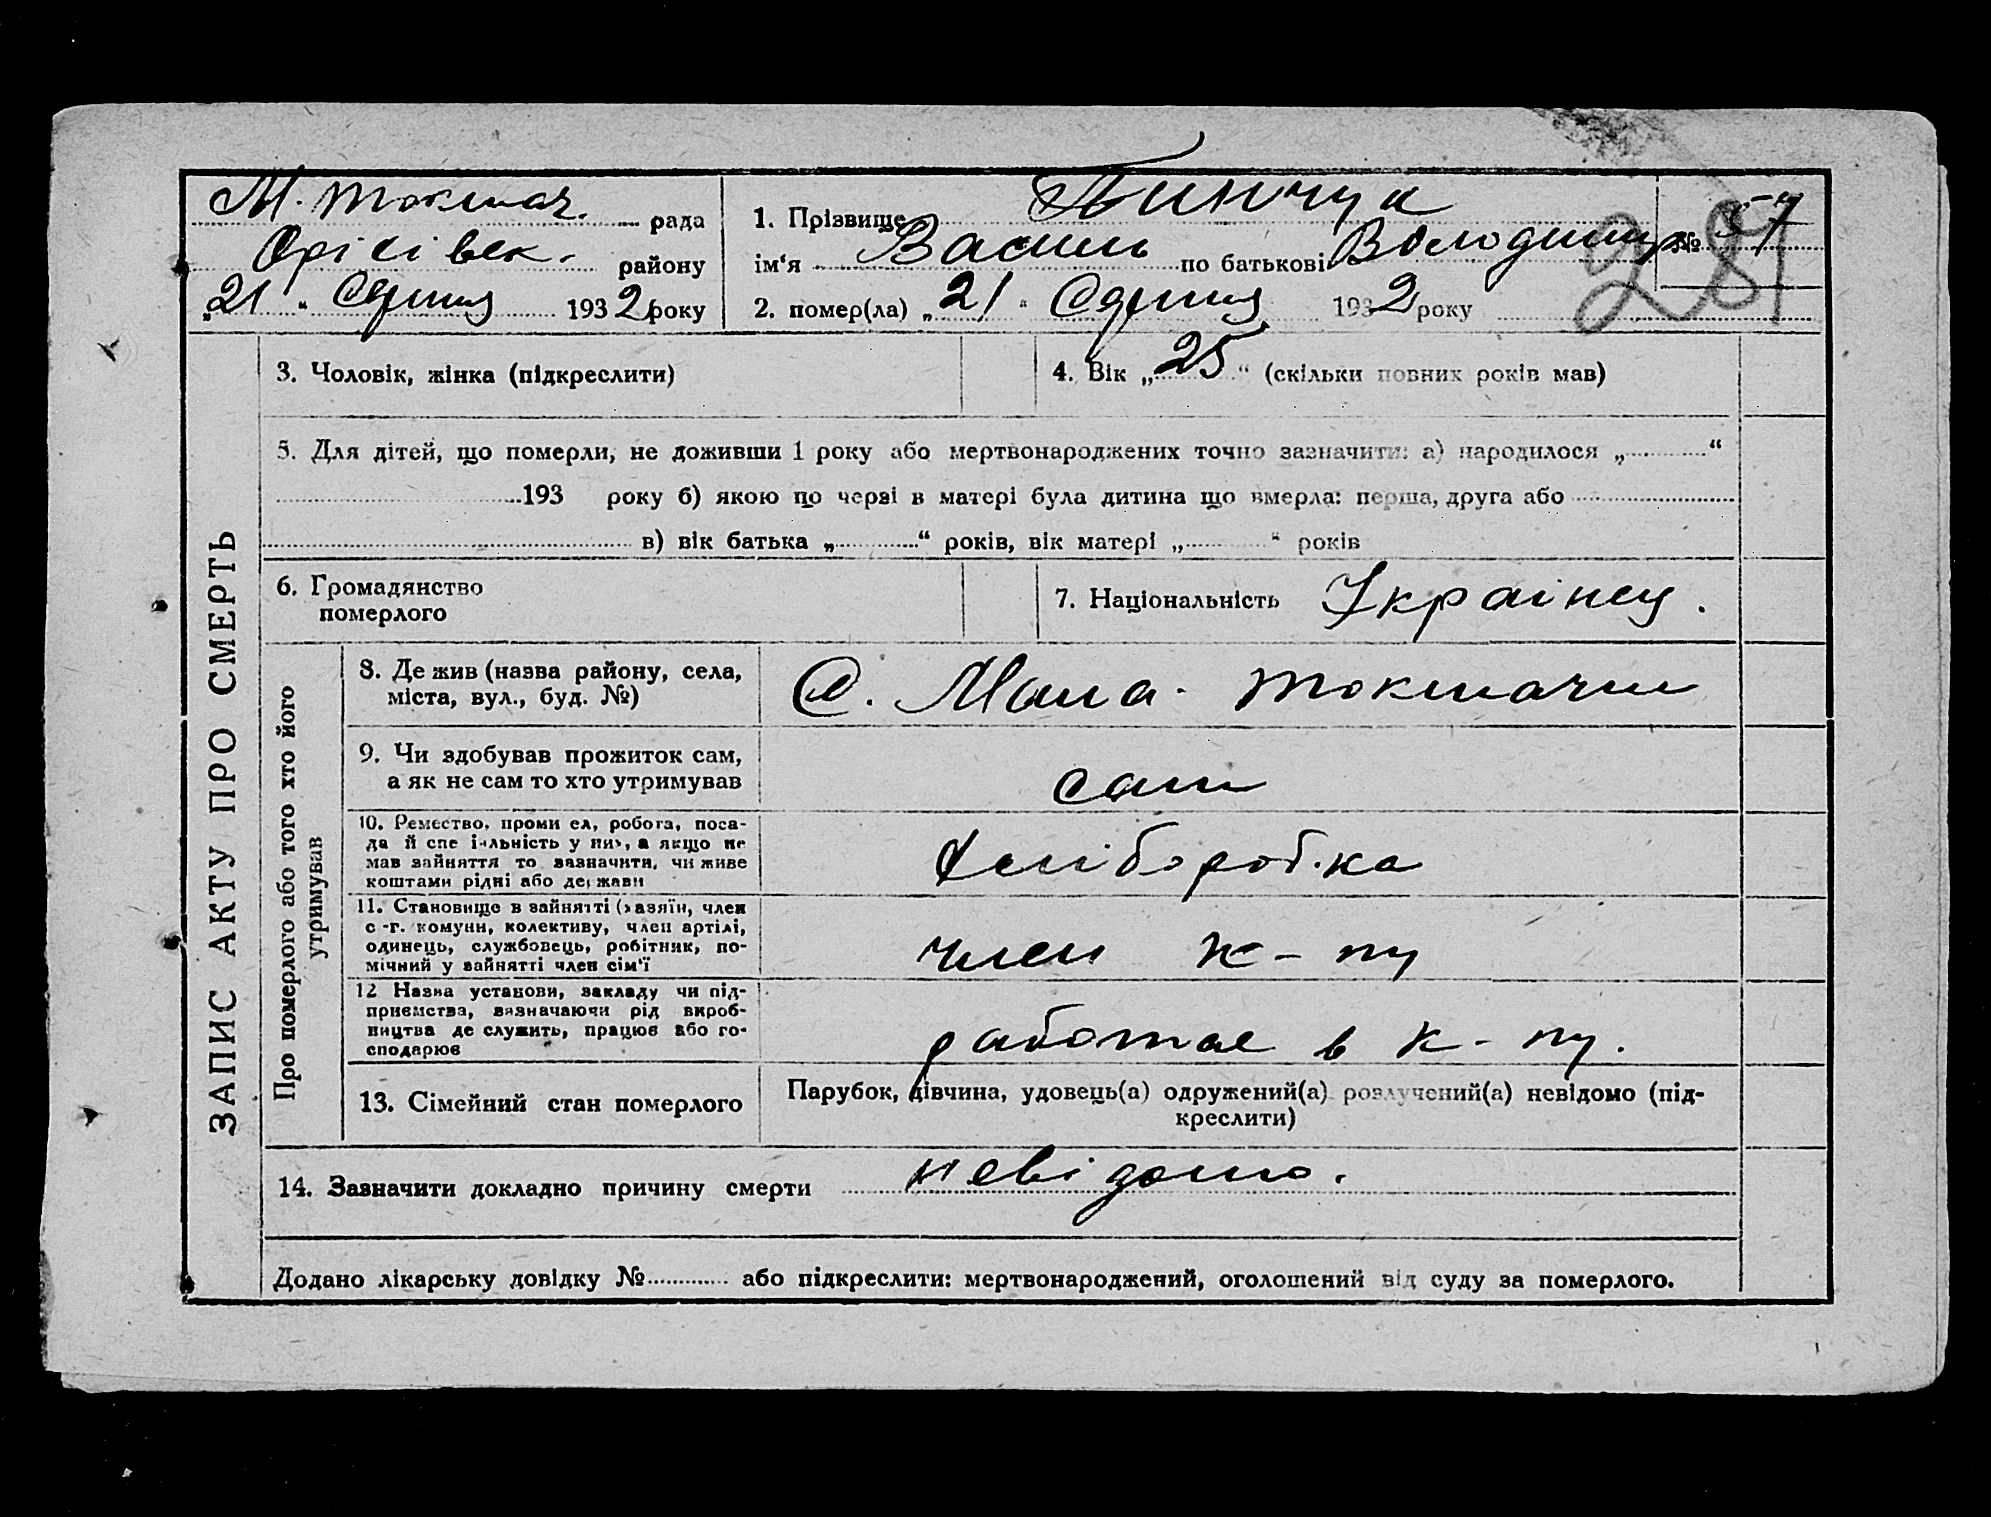 М. Токмач. рада
Оріхівск. району
„21“ Серпня 1932 року
1. Прізвище Пинчук
ім‘я Василь по батькові Володимир № 57
2. помер(ла) „21“ Серпня 1932 року
281
ЗАПИС АКТУ ПРО СМЕРТЬ
3. Чоловік, жінка (підкреслити)
4. Вік „25“ (скільки повних років мав)
5. Для дітей, що померли, не доживши 1 року або мертвонароджених точно зазначити: а) народилося „............“
193 року б) якою по черзі в матері була дитина що вмерла: перша, друга або
в) вік батька „............“ років, вік матері „............“ років
6. Громадянство
померлого
7. Національність Українец.
Про померлого або того хто його
утримував
8. Де жив (назва району, села,
міста, вул., буд. №)
С. Мала. Токмачка
9. Чи здобував прожиток сам,
а як не сам то хто утримував
сам
10. Ремество, промисел, робота, поса-
да й спеціяльність у них, а якщо не
мав зайняття то зазначити, чи живе
коштами рідні або держави
Хліборобка
11. Становище в зайнятті (хазяїн, член
с.-г. комуни, колективу, член артілі,
одинець, службовець, робітник, по-
мічний у зайнятті член сім'ї
член к-пу
12 Назва установи, закладу чи під-
приємства, зазначаючи рід вироб-
ництва де служить, працює або го-
сподарює
работае в к-пу.
13. Сімейний стан померлого
Парубок, дівчина, удовець(а) одружений(а) розлучений(а) невідомо (під-
креслити)
14. Зазначити докладно причину смерти невідомо.
Додано лікарську довідку №............ або підкреслити: мертвонароджений, оголошений від суду за померлого.